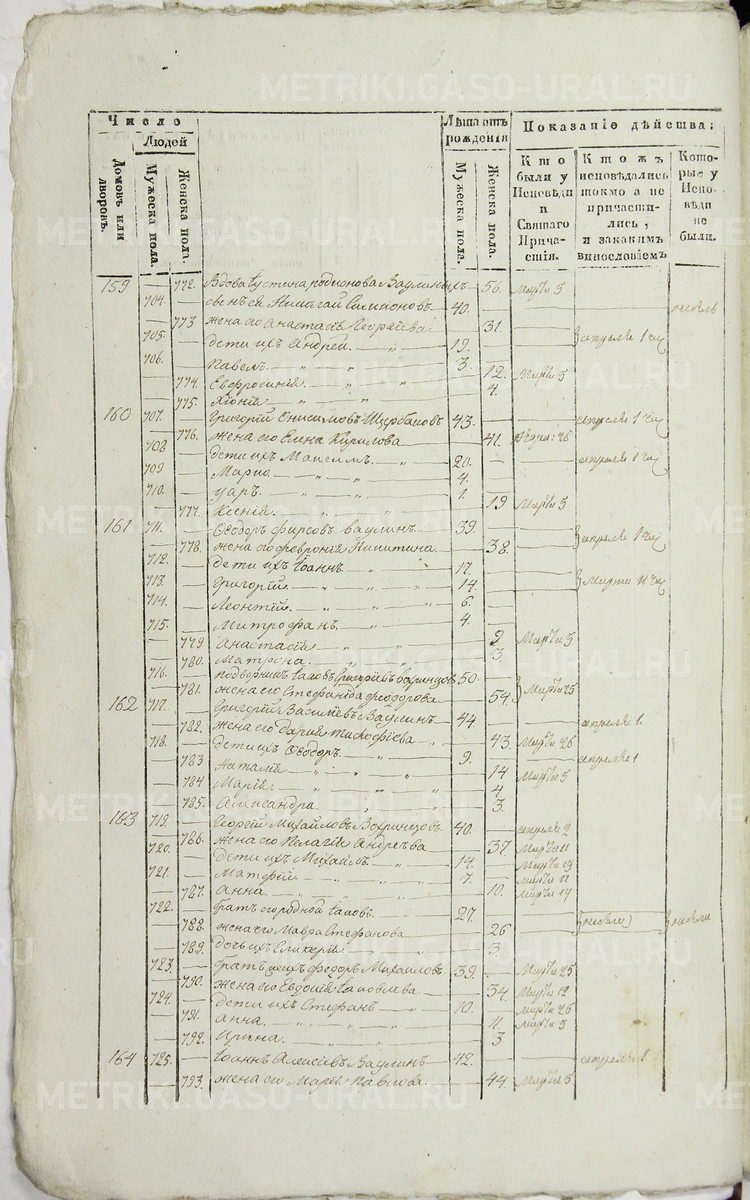 METRIKI.GASO-URAL.RU
Число
Людей
Домовъ или дворовъ.
Мужеска пола.
Женска пола.
Лѣта отъ рожденія
Мужеска пола.
Женска пола.
Показаніе дѣйства:
Кто были у Исповѣди и Святаго Причастія.
Кто жъ исповѣдались токмо а не причастились, и за какимъ винословіемъ
Которые у Исповѣди не были.
159 — 772. Вдова Іустина Родионова Ваулиныхъ — 56. Марта 5
704. — сынъ ея Николай Симионовъ 40.
— 773 жена его Анастасія Георгіева 31.
705. — дети ихъ Андрей. 19. апреля 1
706. — Павелъ 3.
— 774. Евфросинія 12. Марта 5
— 775. Хіонія 4.
160 707. — Григорій Онисимовъ Щербаковъ 43. апреля 1
— 776. жена его Елена Кирилова 41.
708 — дети ихъ Максимъ 20. апреля 1
709 — Марко 4.
710. — 1.
— 777. Ксенія 19 Марта 5
161 711. — Ѳеодоръ Фирсовъ Ваулинъ 39. апреля 1
— 778. жена его Февронія Никитина 38.
712. — дети ихъ Іоаннъ 17.
713. — Григорій 14. Марта 11
714. — Леонтій 6.
715. — Митрофанъ 4.
— 779 Анастасія 9. Марта 5
— 780. Матрона 3.
716. — подворникъ Іаковъ Григорьевъ 50. Марта 25
— 781. жена его Стефанида Феодорова 54.
162 717. — Григорій Василіевъ Ваулинъ 44 апреля 1.
— 782. жена его Дарія Тимофіева 43. Марта 26
718. — дети ихъ Ѳеодоръ 9. апреля 1
— 783 Наталія 14 Марта 5
— 784 Марія 4
— 785. Александра 3.
163 719. — Георгій Михайловъ 40. апреля 2
— 786. жена его Пелагія Андреева 37. Марта 11
720. — дети ихъ Михаилъ 14. Марта 19
721. — Матфій 7. Марта 11
— 787. Анна 10. Марта 19
722. — братъ его родной Іаковъ 27.
— 788. жена его Мавра Стефанова 26
— 789. дочь ихъ Гликерія 3.
723. — братъ Федоръ Михайловъ 39. Марта 25
— 790. жена его Евдокія Іаковлева 34. Марта 12
724. — дети ихъ Стефанъ 10. Марта 25
— 791. Анна 11. Марта 5
— 792. Ирина 3
164 725. — Іоаннъ Алексіевъ Ваулинъ 42. апреля 1
— 793. жена его Марія Павлова 44. Марта 5